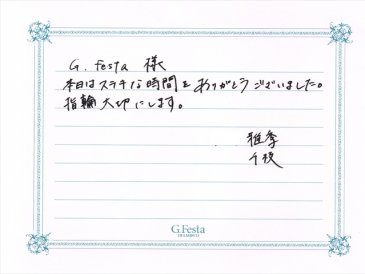 G. festa 様
本日はステキな時間をありがとうございました。
指輪大切にします。
雅季
千枝
G.Festa